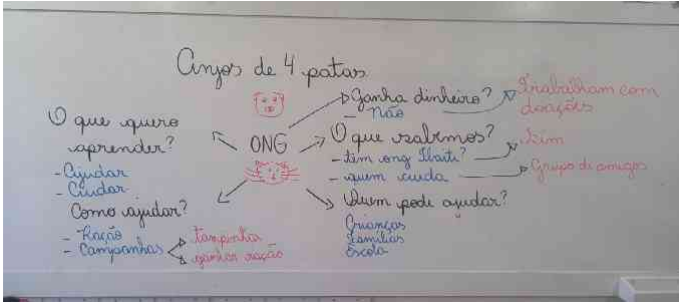 Anjos de 4 patas
O que quero
aprender?
- Ajudar
- Cuidar
Como ajudar?
- Ração
- Campanhas
tampinha
ganhar ração
ONG
Ganha dinheiro?
- Não
Trabalham com
doações
O que sabemos?
- tem ong Ibaiti?
Sim
- quem cuida
Grupo de amigos
Quem pode ajudar?
Crianças
Famílias
Escola